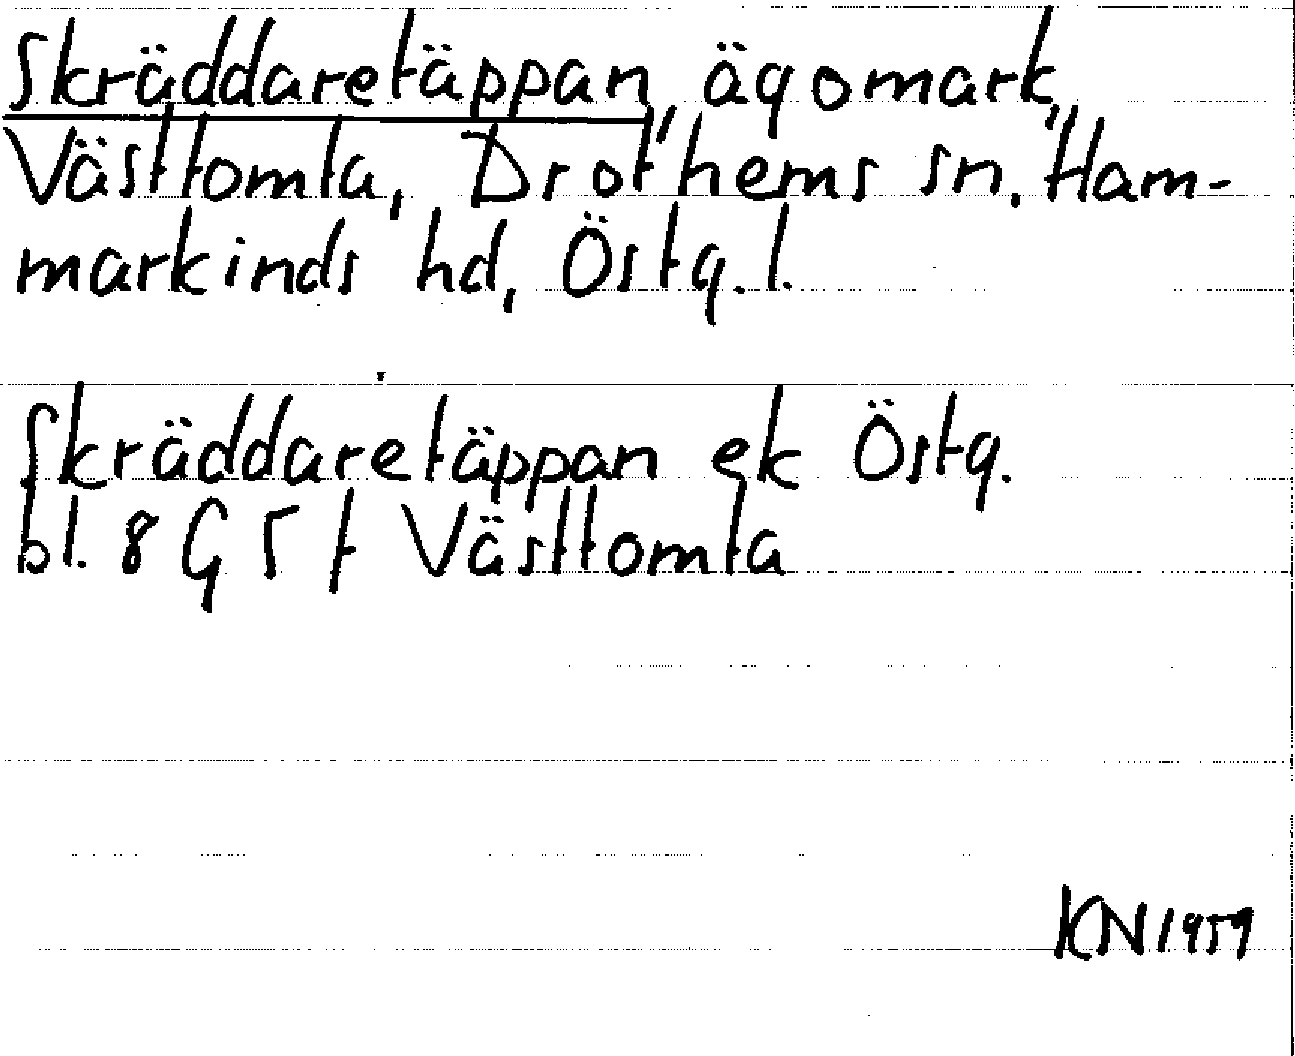 Skräddaretäppan, ägomark,
Västtomta, Drothems sn. Ham-
markinds hd, Östg. l.
Skräddaretäppan ek Östg.
bl. 8 G 5 f Västtomta
KN 1959